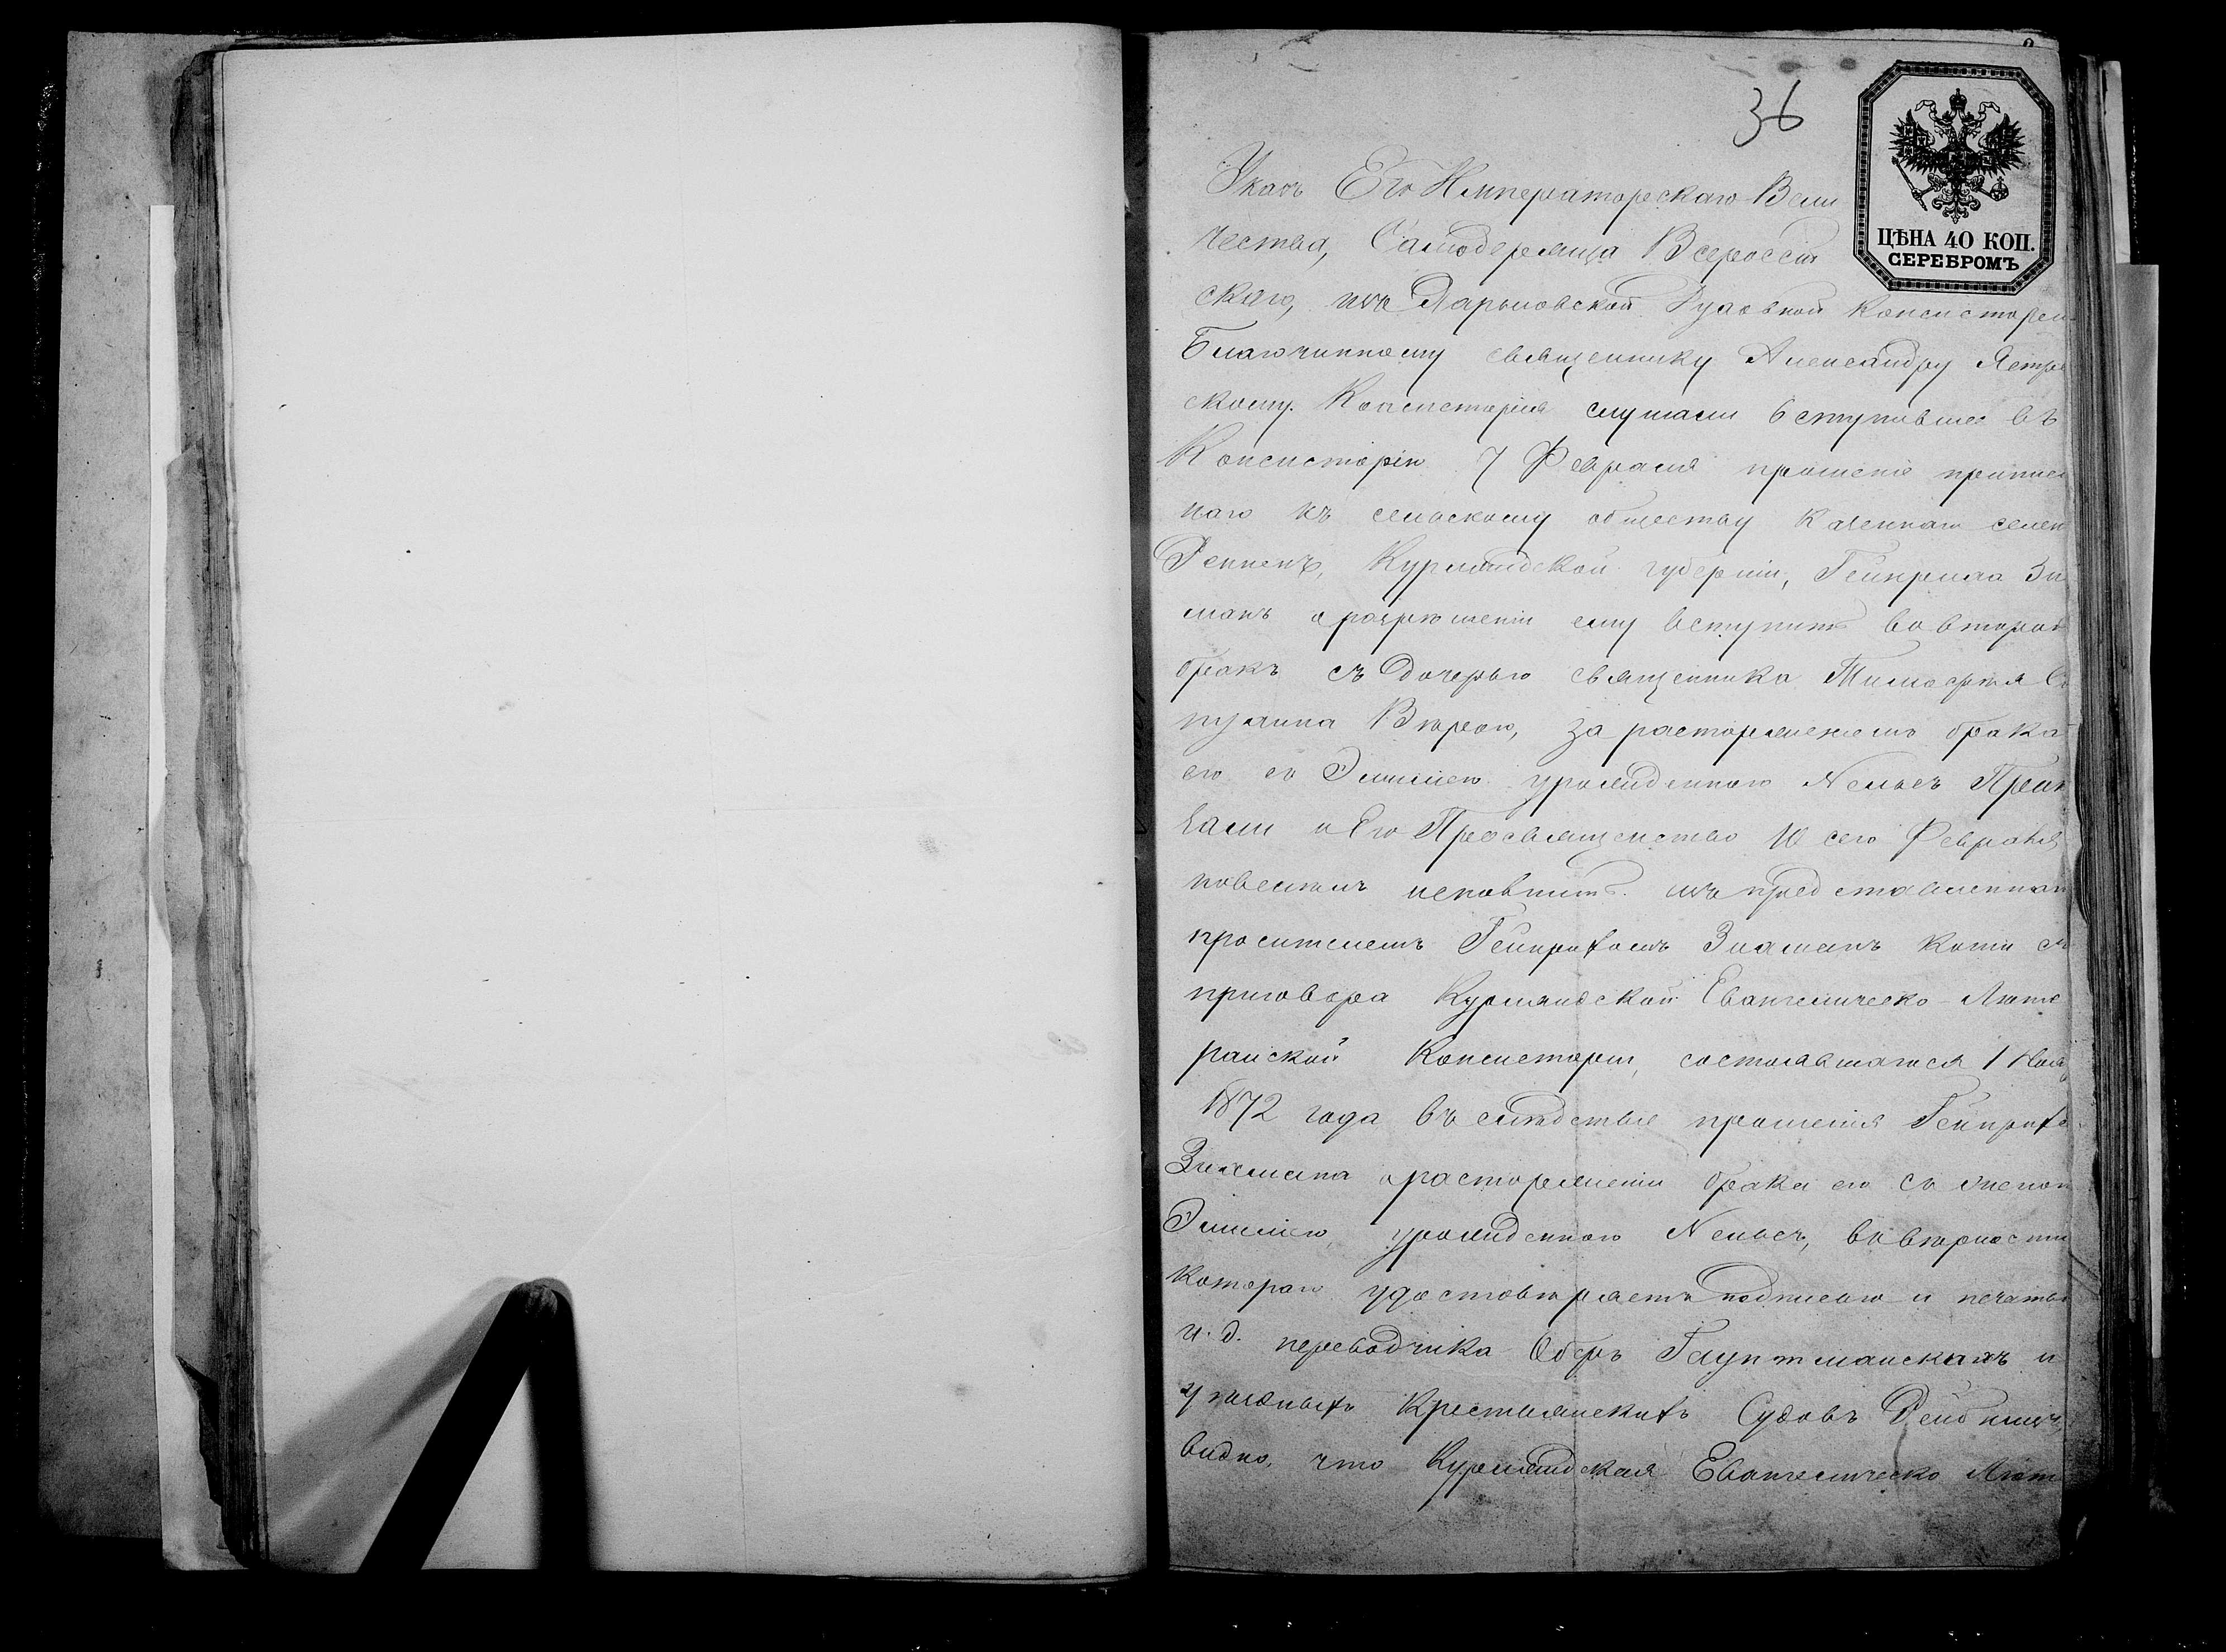 36
ЦѢНА 40 КОП.
СЕРЕБРОМЪ
Указъ Его Императорскаго Вели
чества, Самодержца Всероссій
скаго, изъ Харьковской Духовной Консисторіи
Благочинному священнику Александру
скому. Консисторія слушали вступившее въ
Консисторію 7 Февраля прошеніе приписан
наго къ сельскому обществу Казеннаго селен
Реннень, Курляндской губерніи, Гейнриха Зи
манъ о разрѣшеніи ему вступить во второй
бракъ съ дочерью священника Тимофея
Вѣрою, за расторженіемъ брака
его съ Эмиліею урожденною Нельсъ Прик
зали и Его Преосвященство 10 сего Февраля
повелѣлъ исполнить. изъ представленной
просителемъ Гейнрихомъ копіи съ
приговора Курляндской Евангелическо-Люте
ранской Консисторіи, состоявшагося 1 Ноя
1872 года въ слѣдствіе прошенія Гейнриха
о расторженіи брака его съ женою
Эмиліею, урожденною Нельсъ, въ вѣрности
котораго удостовѣряетъ подписью и печатью
и. д. переводчика Оберъ Гауптманскихъ и
уѣздныхъ Крестьянскихъ Судовъ
видно, что Курляндская Евангелическо Люте